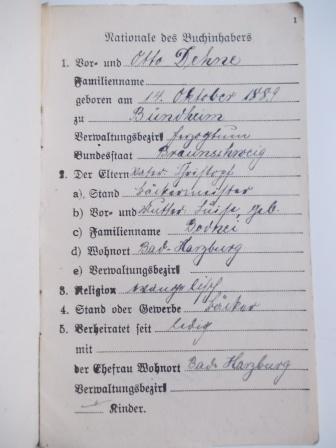 1
Nationale des Buchinhabers
1. Vor- und Otto Dehne
Familienname
geboren am 14. Oktober 1889
zu Bündheim
Verwaltungsbezirk Herzogtum
Bundesstaat Braunschweig
2. Der Eltern Vater Christoph
a) Stand Bäckermeister
b) Vor- und Mutter Luise geb.
c) Familienname
d) Wohnort Bad-Harzburg
e) Verwaltungsbezirk
3. Religion evangelisch
4. Stand oder Gewerbe Bäcker
5. Verheiratet seit ledig
mit
der Ehefrau Wohnort Bad Harzburg
Verwaltungsbezirk
— Kinder.